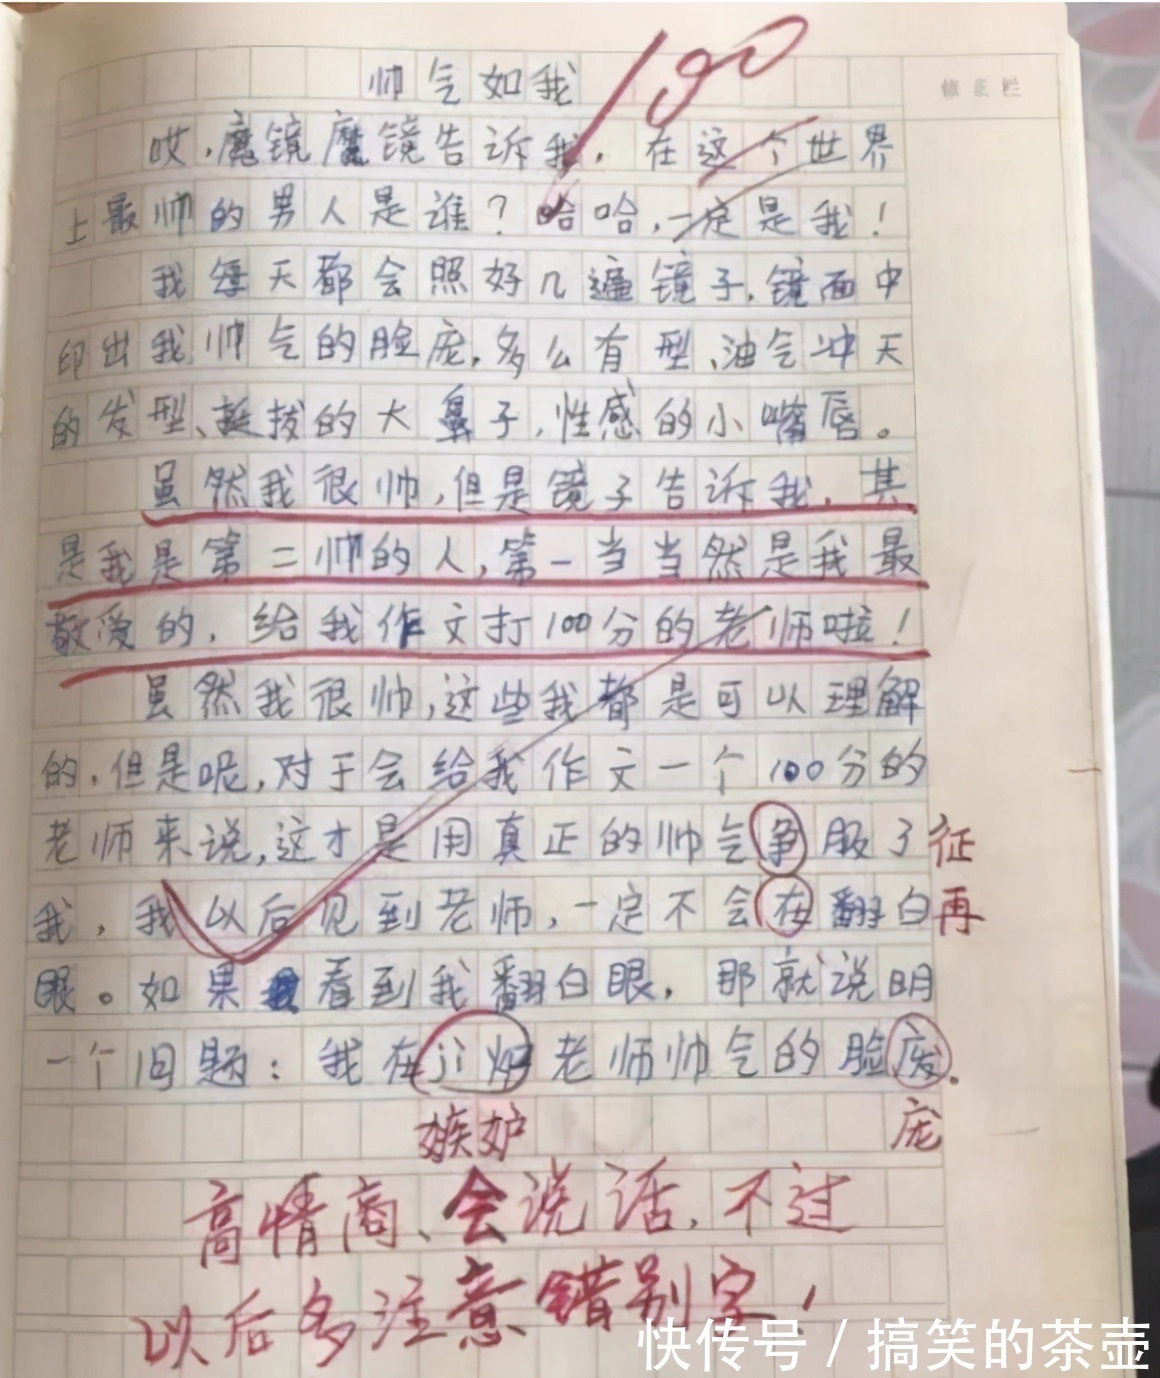 帅气如我
100
修正栏
哎，魔镜魔镜告诉我，在这个世界
上最帅的男人是谁？哈哈，一定是我！
我每天都会照好几遍镜子，镜面中
印出我帅气的脸庞，多么有型、油气冲天
的发型、挺拔的大鼻子，性感的小嘴唇。
虽然我很帅，但是镜子告诉我，其
是我是第二帅的人，第一当当然是我最
敬爱的，给我作文打100分的老师啦！
虽然我很帅，这些我都是可以理解
的，但是呢，对于会给我作文一个100分的
老师来说，这才是用真正的帅气争服了 征
我，我以后见到老师，一定不会在翻白 再
眼。如果我看到我翻白眼，那就说明
一个问题：我在ji妒老师帅气的脸废。
嫉妒 庞
高情商、会说话，不过
以后多注意错别字！
快传号 / 搞笑的茶壶